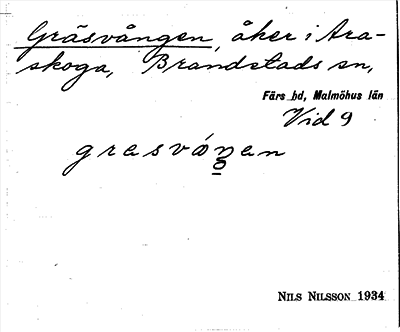 Gräsvången, åker i Ara-
skoga, Brandstads sn,
Färs hd, Malmöhus län
Vid 9
grɛsváŋ̲ɛn
NILS NILSSON 1934